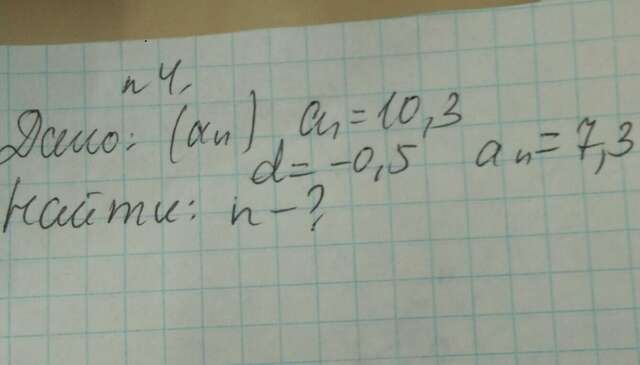 n 4.
Дано: (an) a1 = 10,3
d = -0,5 an = 7,3
Найти: n - ?